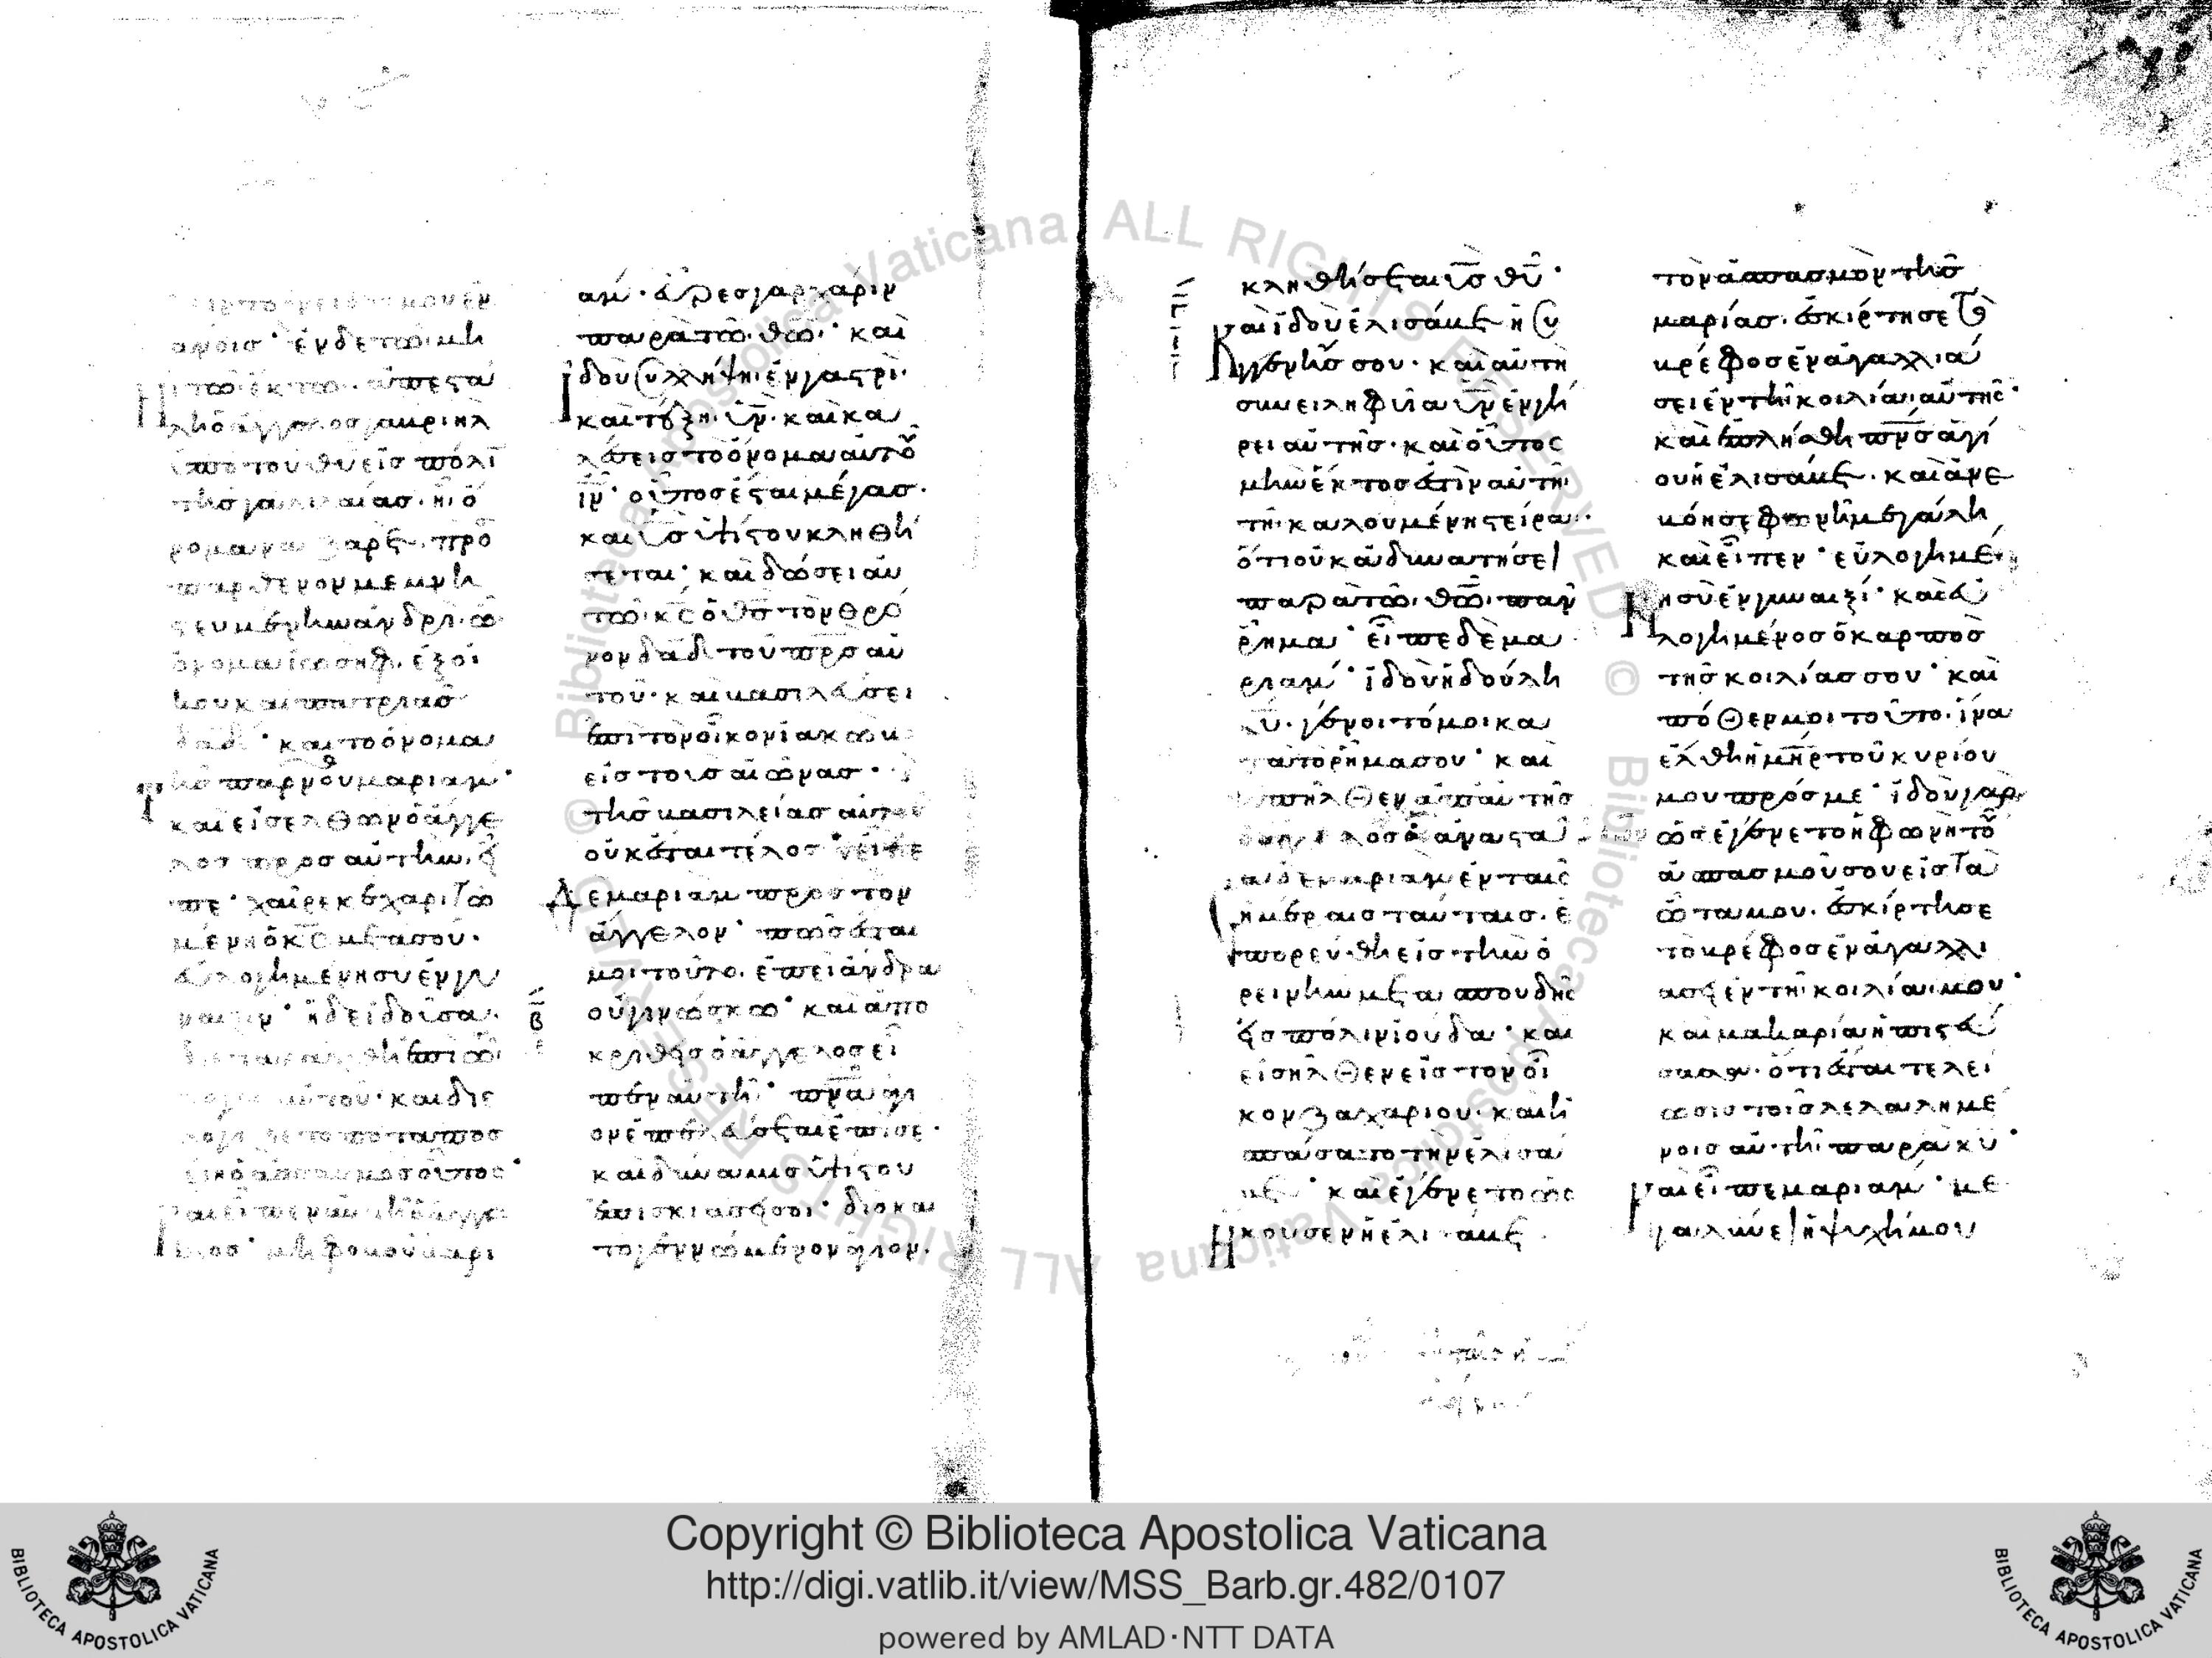 ανοις· ἐν δὲ τῶ μη
νὶ τῶ ἕκτω. ἀπεστά
λη ὁ ἄγγελος γαβριὴλ
ὑπὸ τοῦ θυ εἰς πόλι
τῆς γαλιλαίας. ἧ ὄ
νομα ναζαρὲτ. πρὸ
παρθένον μεμνη
στευμένην ἀνδρὶ. ὧ
ὄνομα ἰωσὴφ. ἐξ οἴ
κου καὶ πατριᾶς
δαδ· καὶ τὸ ὄνομα
τῆς παρθένου μαριάμ·
καὶ εἰσελθὼν ὁ ἄγγε
λος πρὸς αὐτὴν. εἶ
πε· χαῖρε κεχαριτω
μένη ὁ κς μετὰ σοῦ.
εὐλογημένη σὺ ἐν γυ
ναιξὶν· ἡ δὲ ἰδοῦσα.
διεταράχθη ἐπὶ τῶ
λόγω αὐτοῦ· καὶ διε
λογίζετο ποταπὸς
εἴη ὁ ἀσπασμὸς οὗτος·
καὶ εἶπεν αὐτῆ ὁ ἄγγε
λος· μὴ φοβοῦ μαρι
άμ· εὗρες γὰρ χάριν
παρὰ τῶ θῶ· καὶ
ἰδοὺ συλλήψη ἐν γαστρὶ.
καὶ τέξη υν. καὶ κα
λέσεις τὸ ὄνομα αὐτοῦ
ιν· οὗτος ἔσται μέγας.
καὶ υς ὑψίστου κληθή
σεται· καὶ δώσει αὐ
τῶ κς ὁ θς τὸν θρό
νον δαδ τοῦ πρς αὐ
τοῦ. καὶ βασιλεύσει
ἐπὶ τὸν οἶκον ἰακὼβ
εἰς τοὺς αἰῶνας·
τῆς βασιλείας αὐτοῦ
οὐκ ἔσται τέλος· εἶπε
δὲ μαριὰμ πρὸς τὸν
ἄγγελον· πῶς ἔσται
μοι τοῦτο. ἐπεὶ ἄνδρα
οὐ γινώσκω· καὶ ἀπο
κριθεὶς ὁ ἄγγελος εἶ
πεν αὐτῆ· πνα ἅγι
ον ἐπελεύσεται ἐπί σε·
καὶ δύναμις ὑψίστου
ἐπισκιάσει σοι· διὸ καὶ
τὸ γεννώμενον ἅγιον.
κληθήσεται υς θυ·
καὶ ἰδοὺ ἐλισάβετ ἡ συ
γγενής σου. καὶ αὐτὴ
συνειληφυῖα υν ἐν γή
ρει αὐτῆς. καὶ οὗτος
μὴν ἕκτος ἐστὶν αὐτῆ
τῆ καλουμένη στείρα·
ὅτι οὐκ ἀδυνατήσει
παρὰ τῶ θῶ παν
ρῆμα· εἶπε δὲ μα
ριάμ· ἰδοὺ ἡ δούλη
κυ. γένοιτό μοι κα
τὰ τὸ ρῆμα σου· καὶ
ἀπῆλθεν ἀπ αὐτῆς
ὁ ἄγγελος· ἀναστᾶ
σα δὲ μαριὰμ ἐν ταῖς
ἡμέραις ταύταις. ἐ
πορεύθη εἰς τὴν ὀ
ρεινὴν μετὰ σπουδῆς
εἰς πόλιν ἰούδα· καὶ
εἰσῆλθεν εἰς τὸν οἶ
κον ζαχαρίου. καὶ ἠ
σπάσατο τὴν ἐλισά
βετ· καὶ ἐγένετο ὡς
ἤκουσεν ἡ ἐλισάβετ
τὸν ἀσπασμὸν τῆς
μαρίας. ἐσκίρτησε τὸ
βρέφος ἐν ἀγαλλιά
σει ἐν τῆ κοιλία αὐτῆς·
καὶ ἐπλήσθη πνς ἁγί
ου ἡ ἐλισάβετ. καὶ ἀνε
βόησε φωνῆ μεγάλη
καὶ εἶπεν· εὐλογημέ
νη σὺ ἐν γυναιξί· καὶ εὐ
λογημένος ὁ καρπὸς
τῆς κοιλίας σου· καὶ
πόθεν μοι τοῦτο. ἵνα
ἔλθη ἡ μηρ τοῦ κυρίου
μου πρός με· ἰδοὺ γὰρ
ὡς ἐγένετο ἡ φωνὴ τοῦ
ἀσπασμοῦ σου εἰς τὰ
ὦτα μου. ἐσκίρτησε
τὸ βρέφος ἐν ἀγαλλι
άσει ἐν τῆ κοιλία μου·
καὶ μακαρία ἡ πιστεύ
σασα. ὅτι ἔσται τελεί
ωσις τοῖς λελαλημέ
νοις αὐτῆ παρὰ κυ·
καὶ εἶπε μαριάμ· με
γαλύνει ἡ ψυχή μου
Copyright © Biblioteca Apostolica Vaticana
http://digi.vatlib.it/view/MSS_Barb.gr.482/0107
powered by AMLAD·NTT DATA
BIBLIOTECA APOSTOLICA VATICANA
BIBLIOTECA APOSTOLICA VATICANA